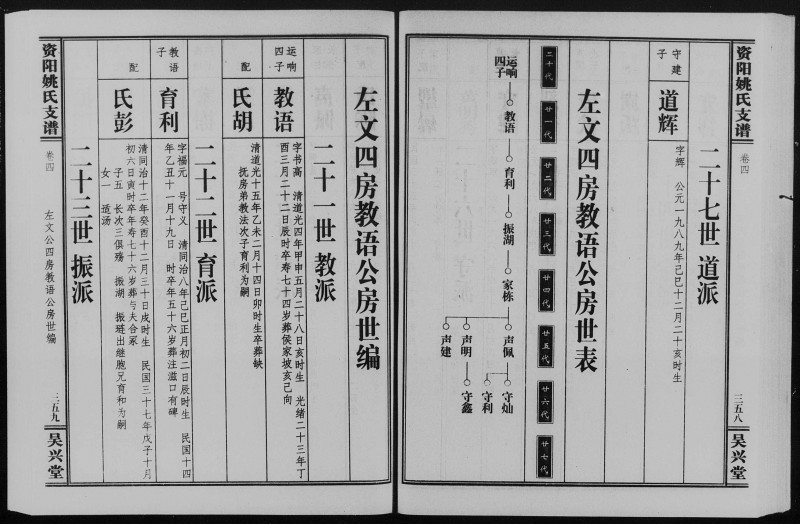 资阳姚氏支谱
卷四
三五八
吴兴堂
二十七世 道派
守建
子
道辉
字辉 公元一九八九年己巳十二月二十亥时生
左文四房教语公房世表
二十代
廿一代
廿二代
廿三代
廿四代
廿五代
廿六代
廿七代
运响
四子
教语
育利
振湖
家栋
声佩
声明
声建
守灿
守利
守鑫
左文四房教语公房世编
二十一世 教派
运响
四子
教语
字书高 清道光四年甲申五月二十八日亥时生 光绪二十三年丁
酉三月二十二日辰时卒寿七十四岁葬侯家坡亥己向
配
氏胡
清道光十五年乙未二月十四日卯时生卒葬缺
抚房弟教法次子育利为嗣
二十二世 育派
教语
子
育利
字福元 号守义 清同治八年己巳正月初二日辰时生 民国十四
年乙丑十一月十九日 时卒年五十六岁葬注滋口有碑
配
氏彭
清同治十二年癸酉十二月三十日戌时生 民国三十七年戊子十月
初六日寅时卒年寿七十六岁葬与夫合冢
子五 长次三俱殇 振湖 振琏出继胞兄育和为嗣
女一 适汤
二十三世 振派
资阳姚氏支谱
卷四
左文公四房教语公房世编
三五九
吴兴堂